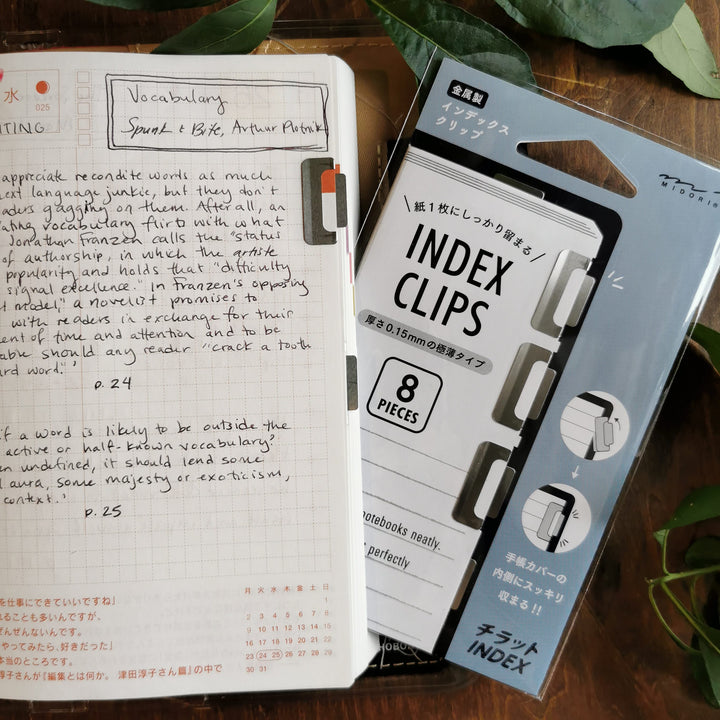 水
025
ITING
Vocabulary
Spunk & Bite, Arthur Plotnik
appreciate recondite words as much
ext language junkie, but they don't
aders gagging on them. After all, an
ating vocabulary flirts with what
Jonathan Franzen calls the "status
of authorship, in which the artiste
popularity and holds that "difficulty
signal excellence." In Franzen's opposing
model," a novelist promises to
with readers in exchange for their
ent of time and attention and to be
able should any reader "crack a tooth
ard word."'
p. 24
if a word is likely to be outside the
active or half-known vocabulary?
en undefined, it should lend some
aura, some majesty or exoticism,
context.'
p. 25
を仕事にできていいですね」
れることも多いんですが、
ぜんぜんないんです。
やってみたら、好きだった」
本当のところです。
淳子さんが『編集とは何か。 津田淳子さん篇』の中で
月 火 水 木 金 土 日
1
2 3 4 5 6 7 8
9 10 11 12 13 14 15
16 17 18 19 20 21 22
23 24 25 26 27 28 29
30 31
金属製
インデックス
クリップ
MIDORI®
紙1枚にしっかり留まる
INDEX
CLIPS
厚さ0.15mmの極薄タイプ
8
PIECES
notebooks neatly.
perfectly
手帳カバーの
内側にスッキリ
収まる!!
チラット
INDEX
HOBO